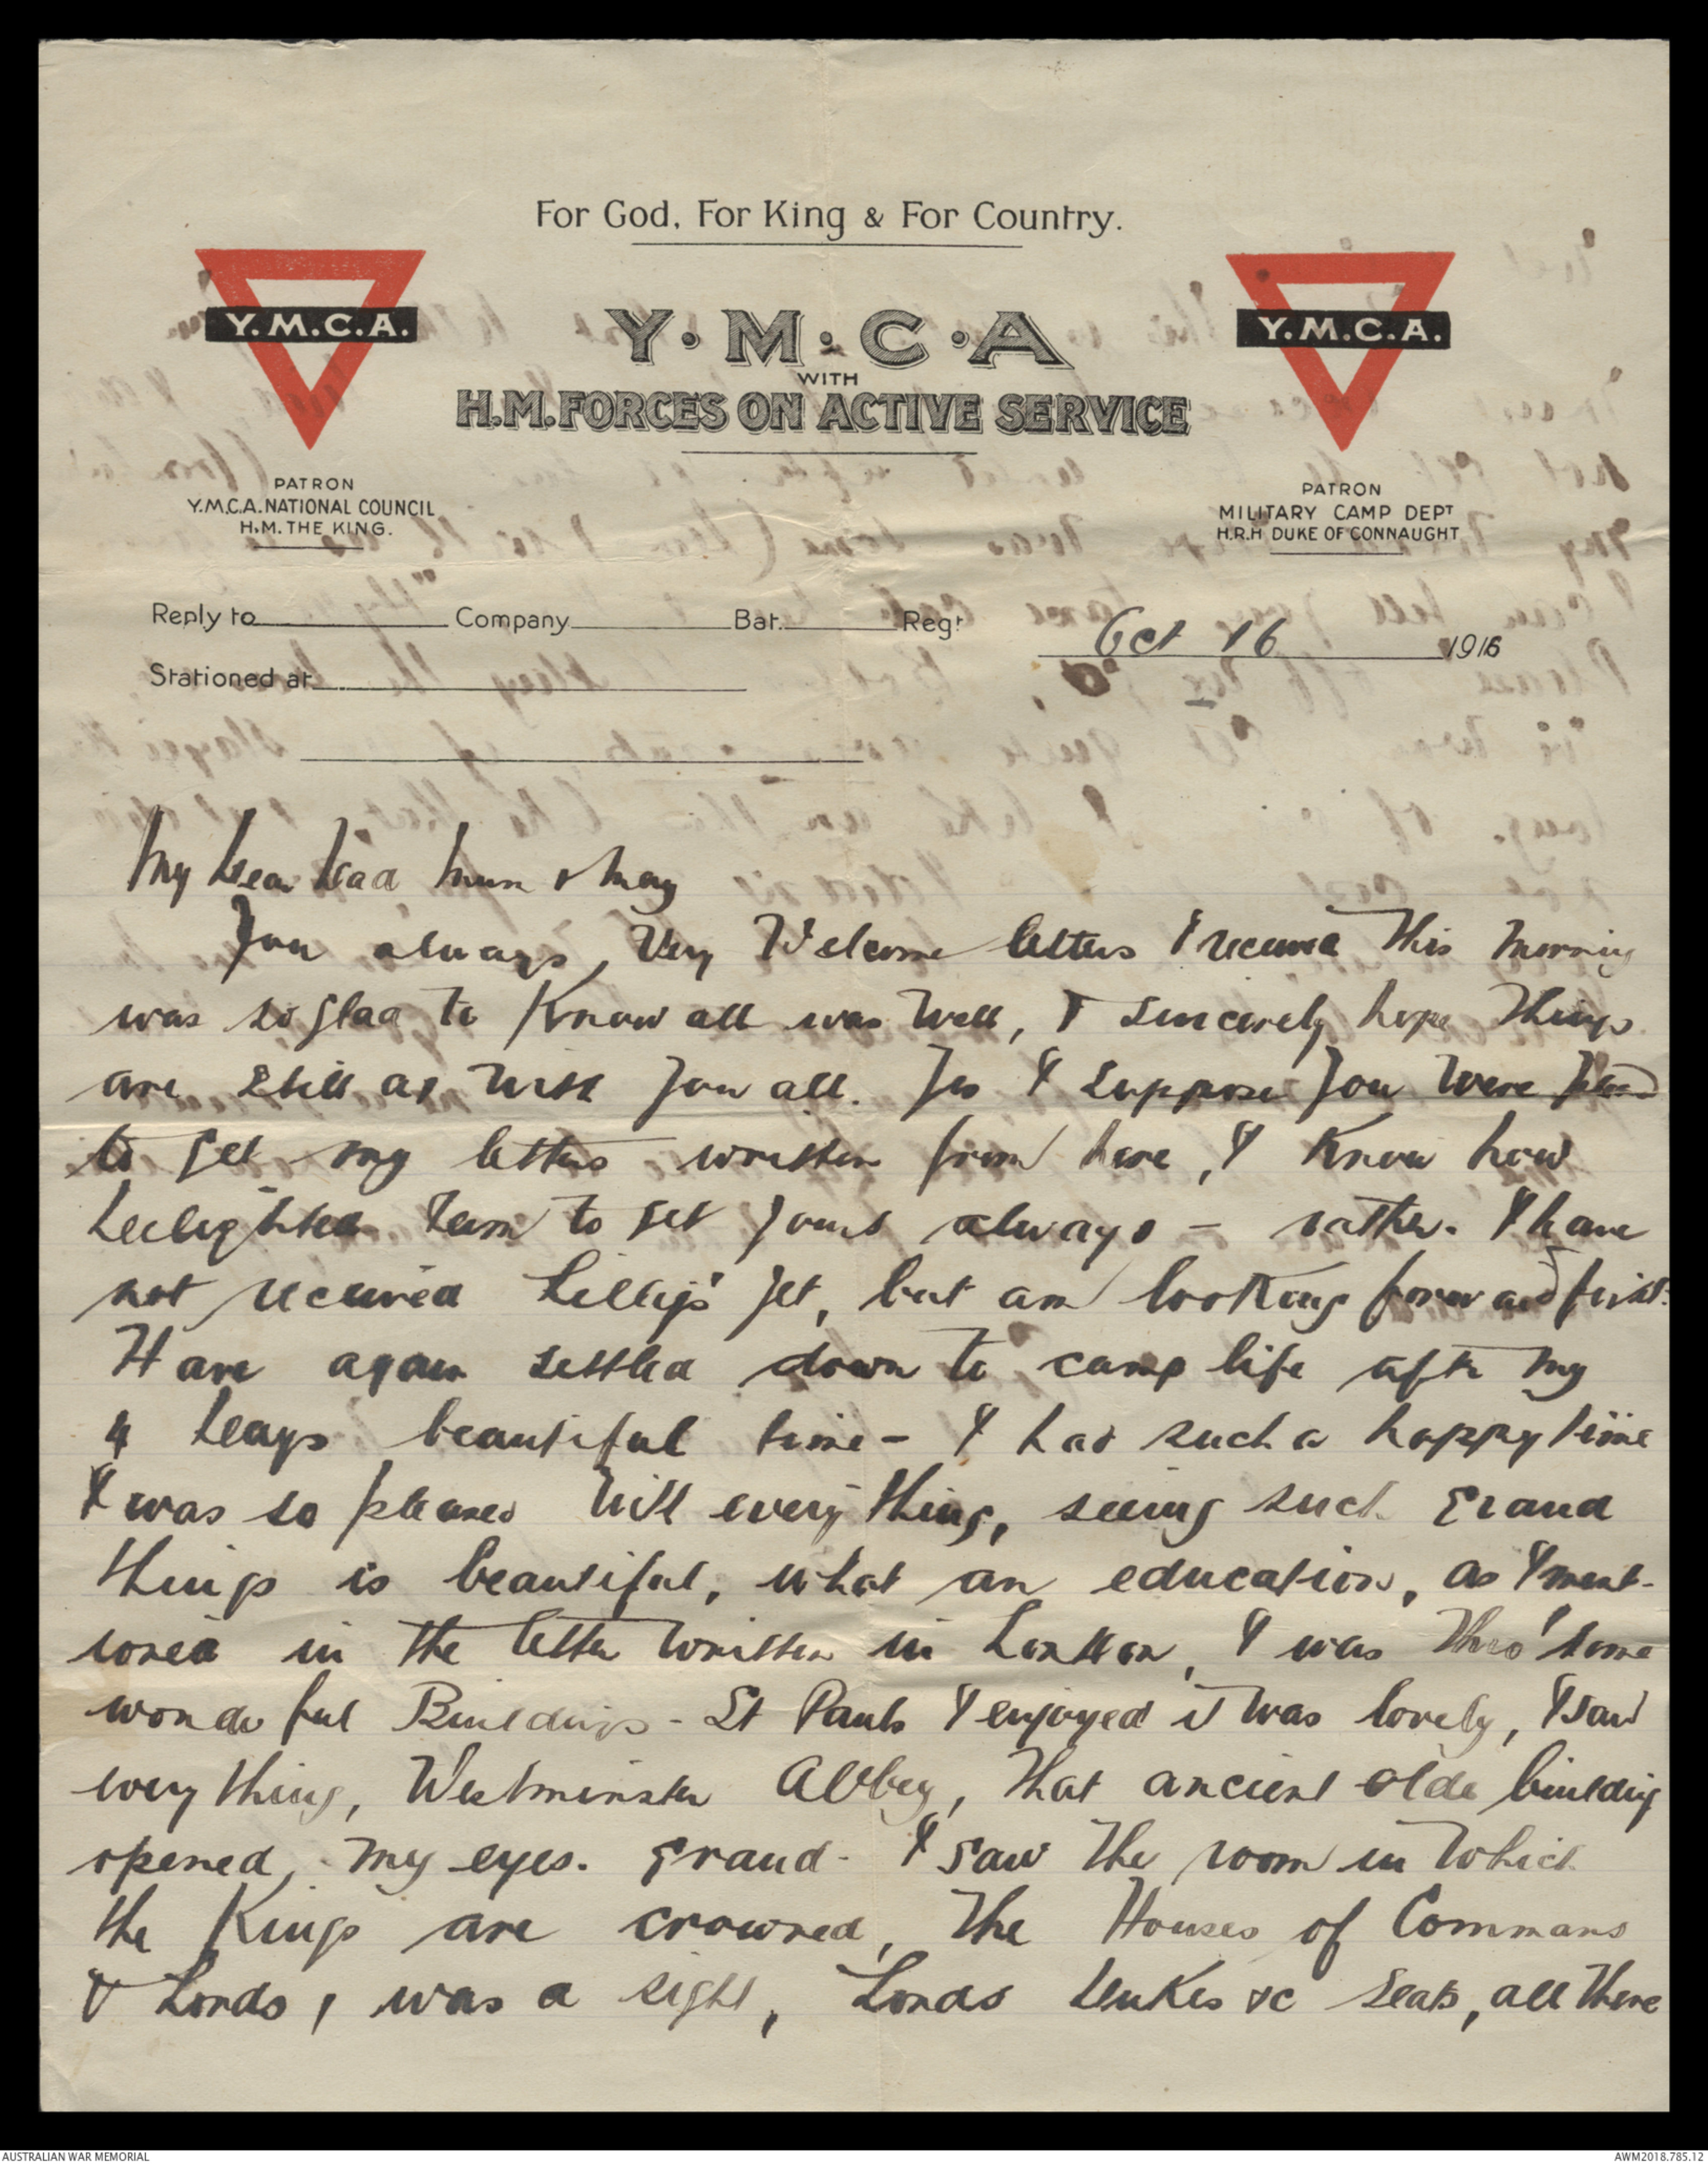 For God, For King & For Country.
Y.M.C.A.
Y.M.C.A.
Y·M·C·A
WITH
H.M. FORCES ON ACTIVE SERVICE
PATRON
Y.M.C.A. NATIONAL COUNCIL
H.M. THE KING.
PATRON
MILITARY CAMP DEPT
H.R.H DUKE OF CONNAUGHT
Reply to Company Bat. Regt Oct 16 1916
Stationed at
My Dear Dad, Mum & May
Your always, Very Welcome letters I received This Morning
was so glad to Know all was Well, & sincerely hope Things
are still as with You all. Yes I suppose You Were
to get my letters written from here, I Know how
to get Yours always – rather. I have
not received Lilly's Yet, but am looking forward
Have again settled down to camp life after my
4 Days beautiful time – I had such a happy time
I was so pleased with everything, seeing such grand
things is beautiful, what an education, as I ment-
ioned in the letter written in London, I was Thro' some
wonderful Buildings – St Pauls I enjoyed it was lovely, I saw
everything, Westminster Abbey, That ancient olde building
opened, my eyes. grand – I saw the room in which
the Kings are crowned, The Houses of Commons
& Lords, was a sight, Lords Dukes &c Seats, all there
AUSTRALIAN WAR MEMORIAL
AWM2018.785.12